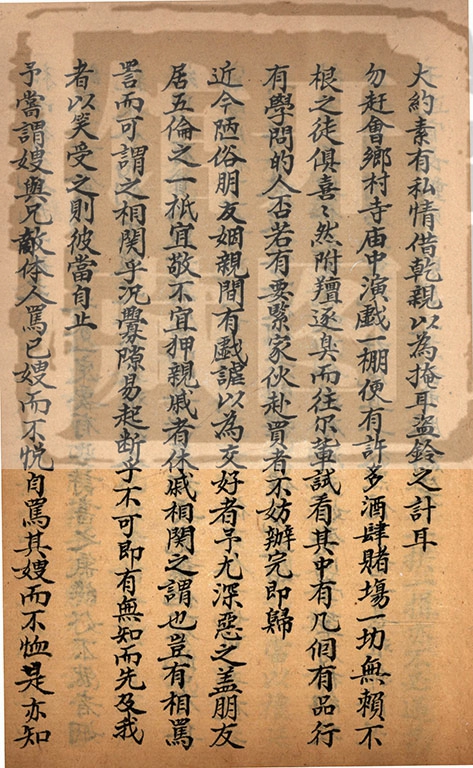 大約素有私情借乾親以為掩耳盗鈴之計耳
勿赶會鄉村寺庙中演戯一棚便有許多酒肆賭塲一切無賴不
根之徒俱喜〻然附羶逐臭而往尔輩試看其中有几個有品行
有學問的人否若有要緊家伙赴買者不妨辦完即歸
近今陋俗朋友姻親間有戯謔以為交好者予尤深惡之盖朋友
居五倫之一祇宜敬不宜狎親戚者休戚相関之謂也豈有相罵
詈而可謂之相関乎况釁隙易起断乎不可即有無知而先及我
者以笑受之則彼當自止
予嘗謂嫂與兄敵体人罵己嫂而不悦自罵其嫂而不恤是亦知